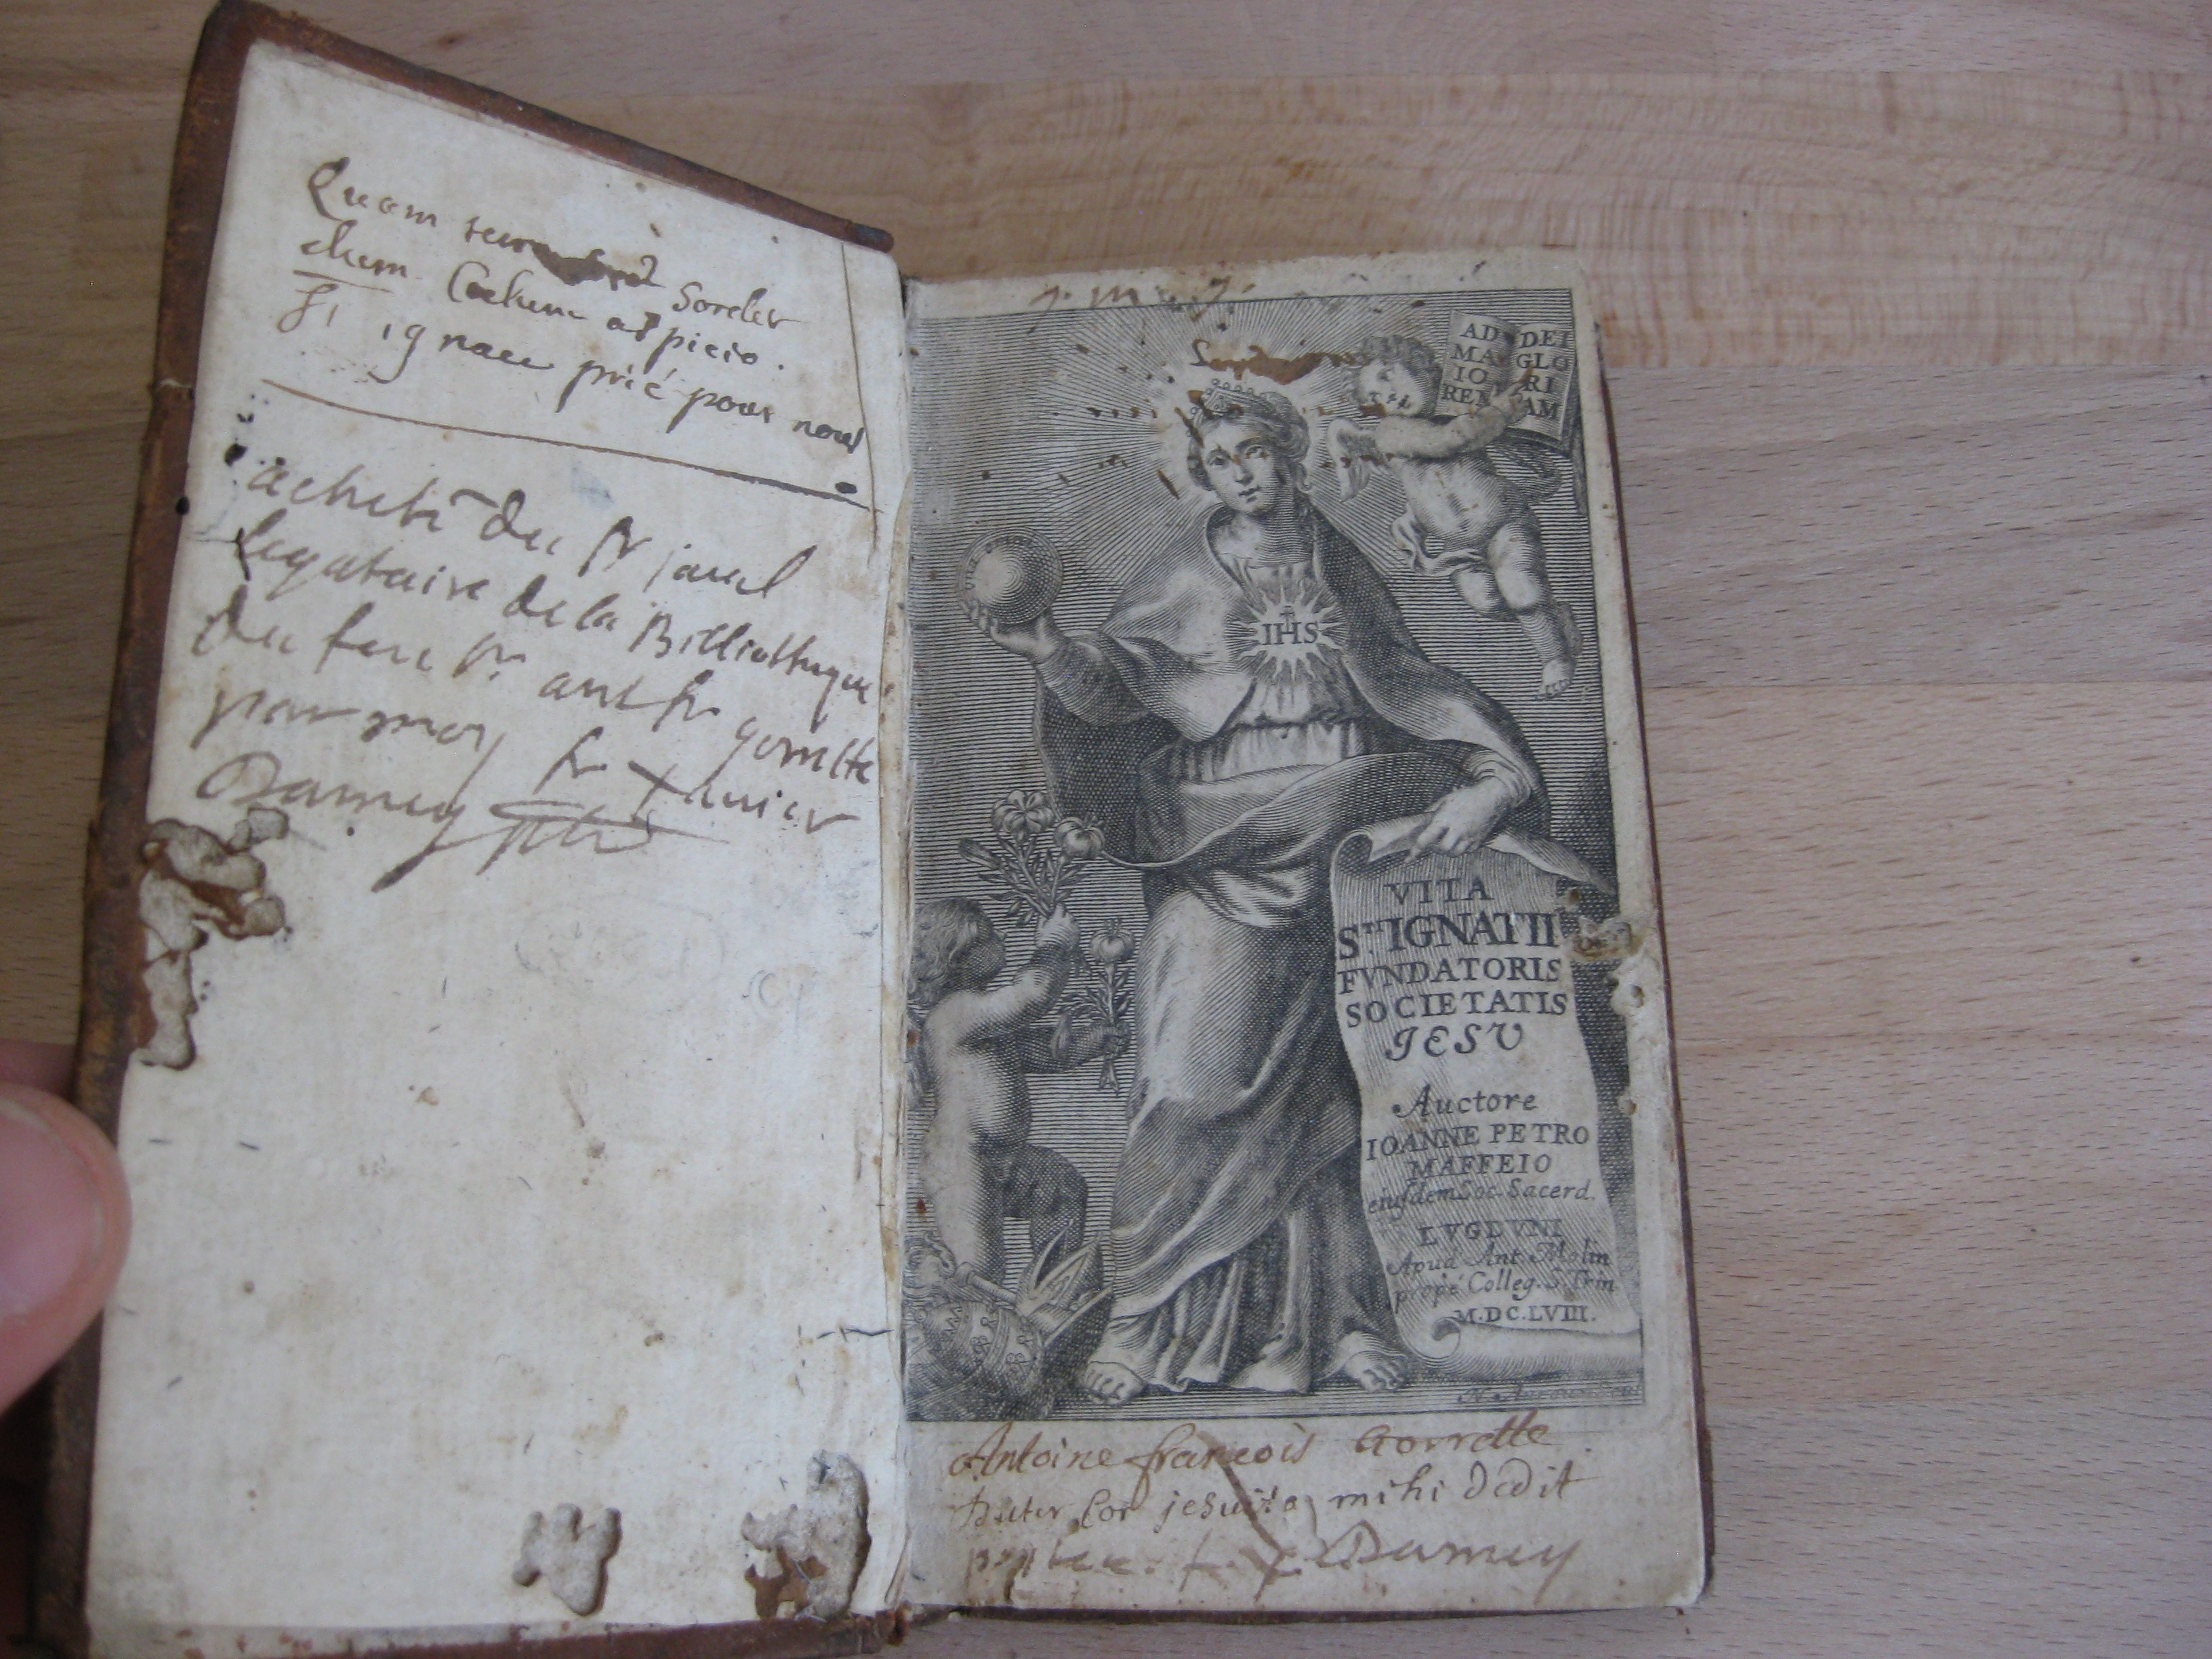 Quam Sordet
dum Cœlum aspicio.
St ignace prié pour nous
acheté du Sr javel
legataire de la Bibliotheque
du feu Sr ant fr gorrette
par moy fr Xavier
Damey
j. m. j.
AD MAIOREM DEI GLORIAM
VITA
IHS
VITA
S.TI IGNATII
FVNDATORIS
SOCIETATIS
JESV
Auctore
IOANNE PETRO
MAFFEIO
eiusdem Soc. Sacerd.
LVGDVNI
Apud Ant. Molin
prope Colleg. S. Trin
M.DC.LVIII.
Antoine francois Gorrette
jesuita mihi dedit
f. X. Damey